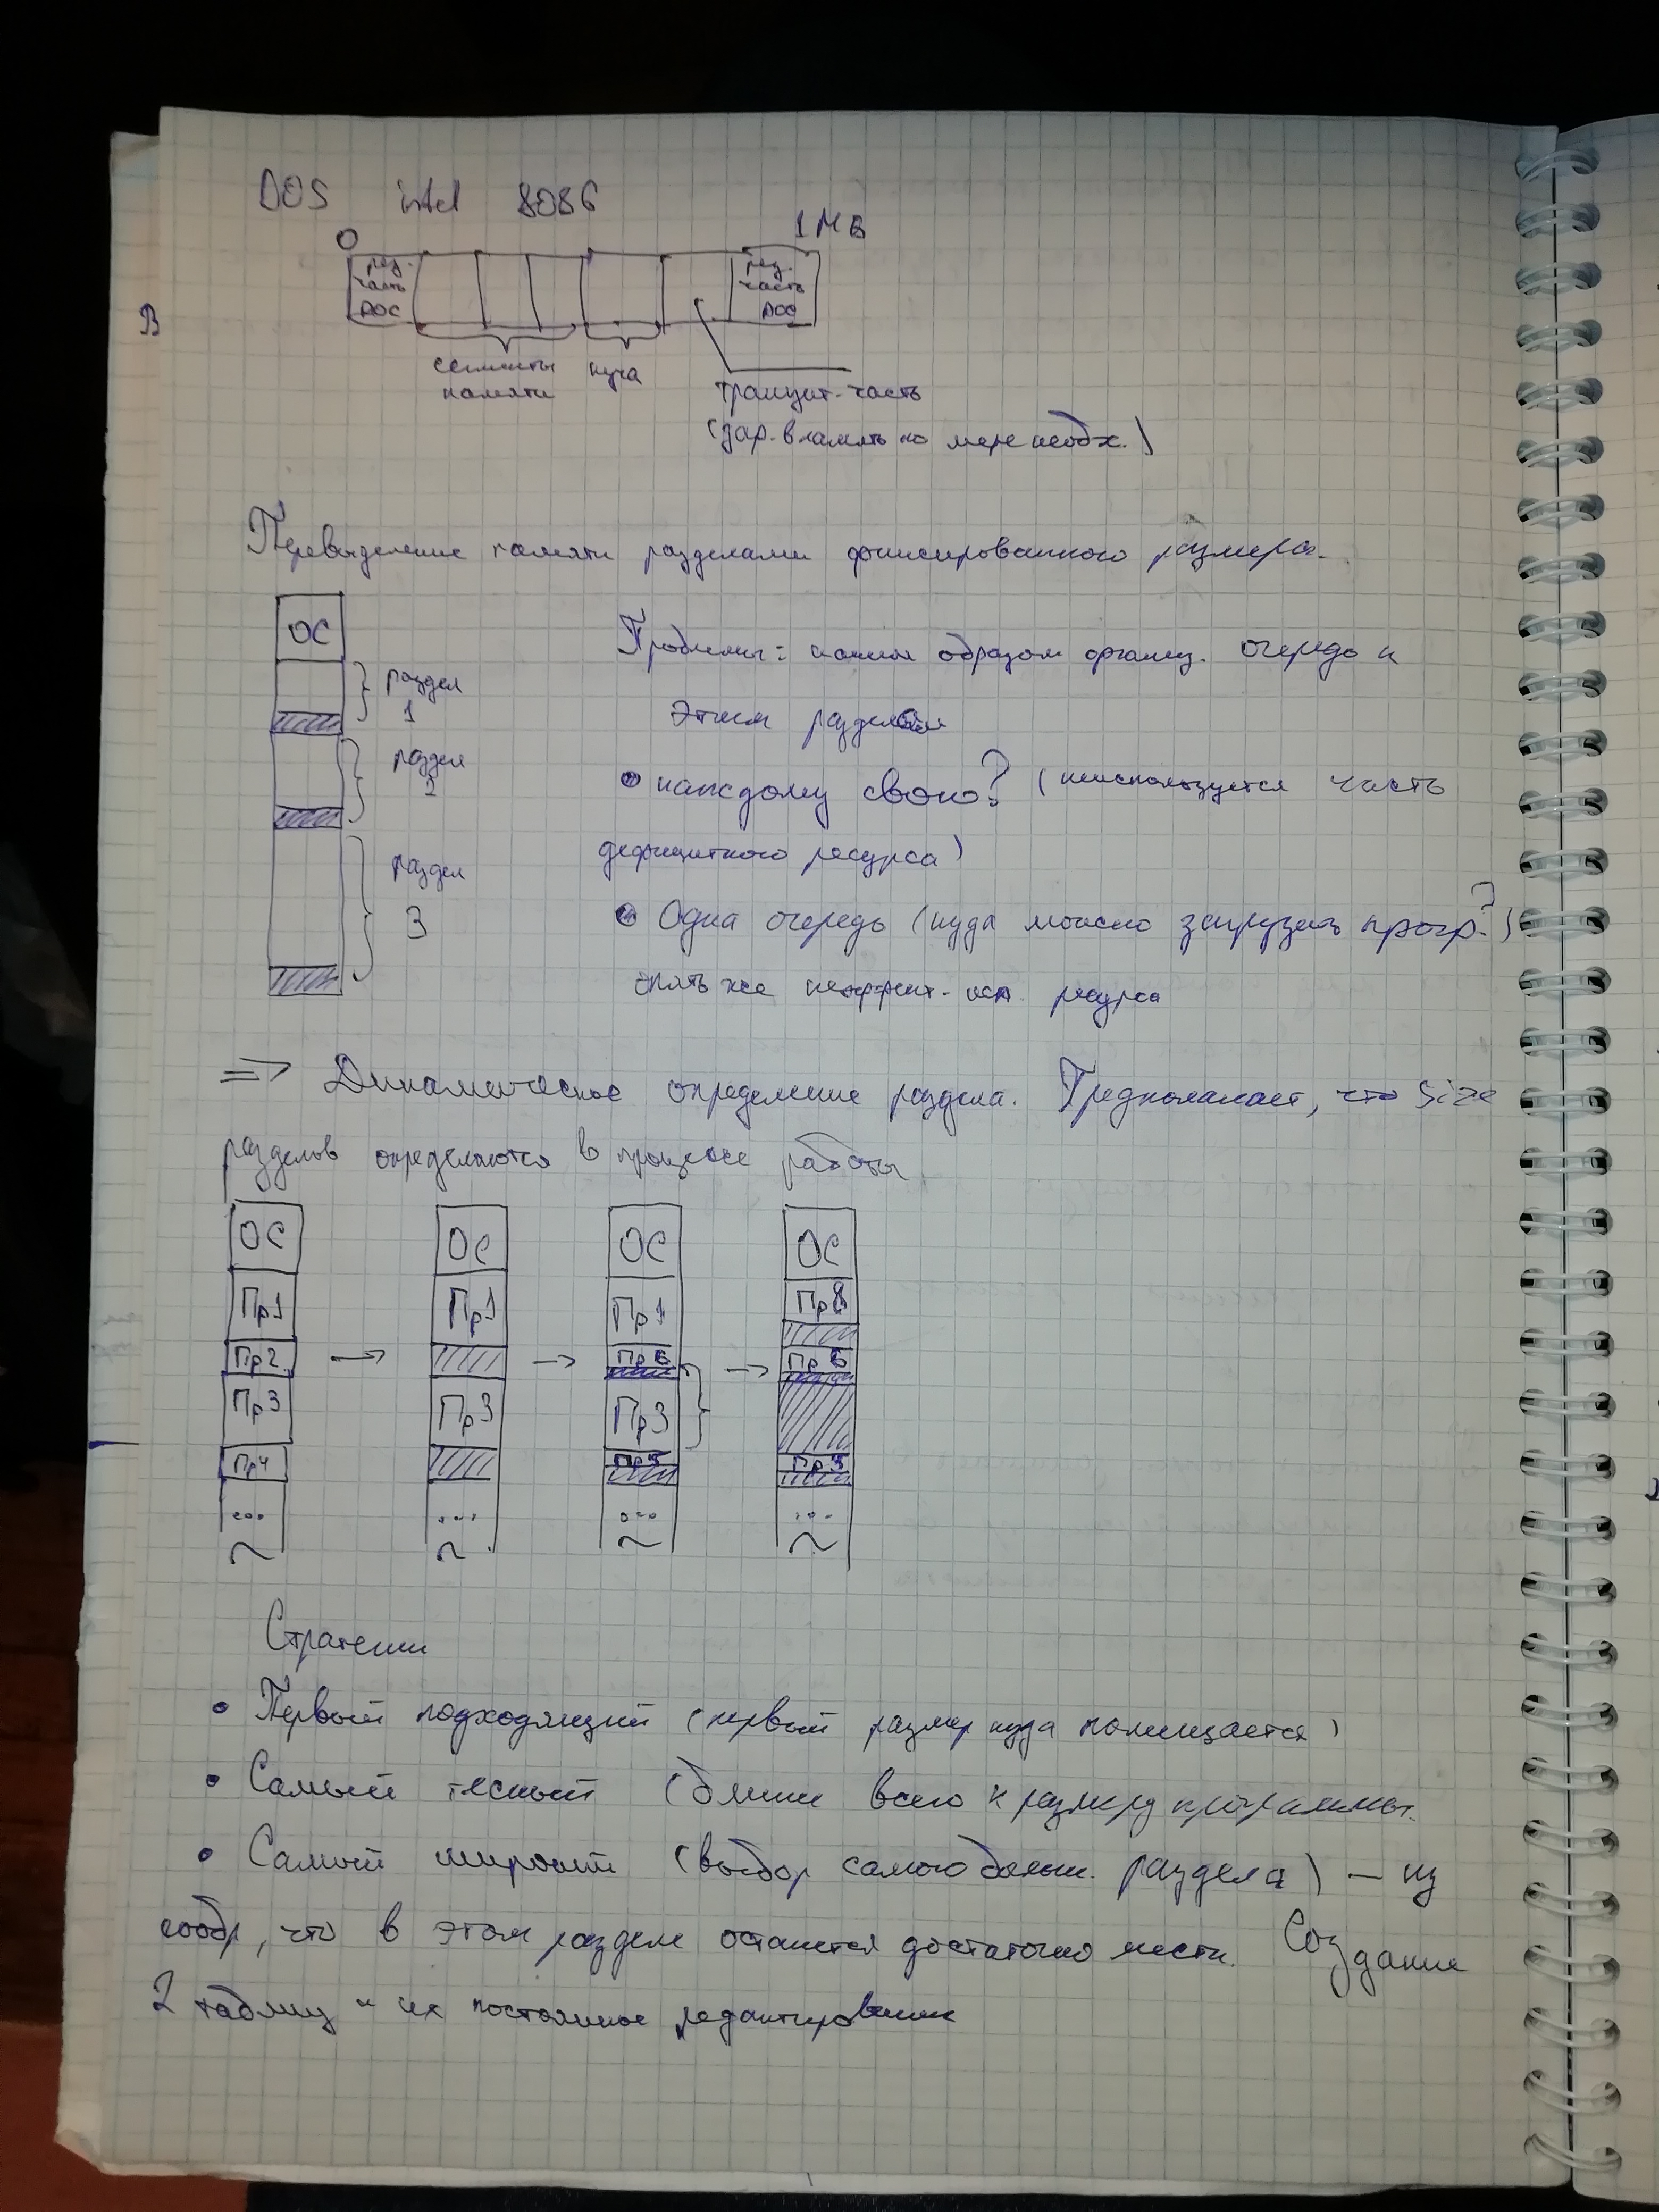 DOS intel 8086
0 1МБ
рез. часть DOC
рез. часть DOC
В
сегменты памяти
куча
транзит. часть
(загр. в память по мере необх.)
памяти разделами фиксированного размера.
ОС
раздел 1
раздел 2
раздел 3
Проблемы: каким образом организ. очередь к
этим разделам
• каждому свою? (неиспользуется часть
дефицитного ресурса)
• Одна очередь (куда можно загрузить прогр.?)
опять же неэффект. исп. ресурса
=> Динамическое определение раздела. Предполагает, что size
разделов определяются в процессе работы
ОС ОС ОС ОС
Пр1 Пр1 Пр1 Пр8
Пр2 → → Пр6 → Пр6
Пр3 Пр3 Пр3
Пр4 Пр5 Пр5
... ... ... ...
Стратегии
• Первый подходящий (первый размер куда помещается)
• Самый тесный (ближе всего к размеру программы.
• Самый широкий (выбор самого больш. раздела) — из
сообр, что в этом разделе останется достаточно места. Создание
2 таблиц и их постоянное редактирование